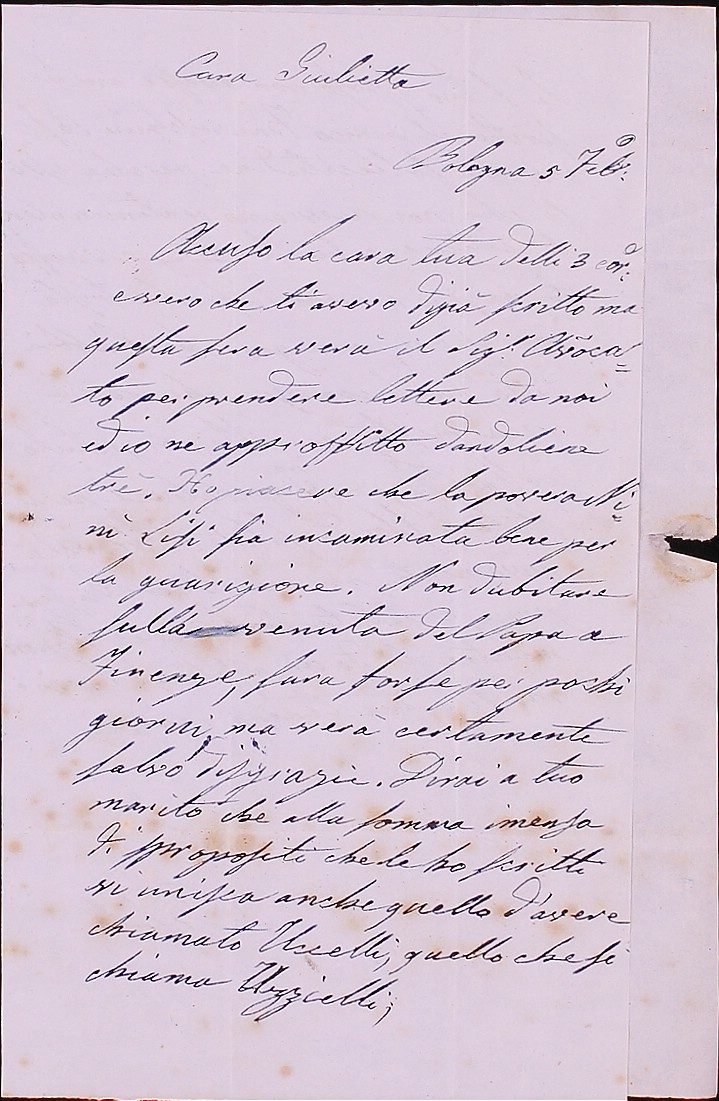 Cara Giulietta
Bologna 5 Feb.o
Accuso la cara tua delli 3 cor.e
e vero che ti avevo digià scritto ma
questa sera verà il Sig.r Avoca=
to per prendere lettere da noi
ed io ne approffitto dandoliene
tre. Ho piacere che la povera Ni=
nì Lisi sia incaminata bene per
la guarigione. Non dubitare
sulla venuta del Papa a
Firenze, sara forse per pochi
giorni, ma verà certamente
salvo disgrazie. Dirai a tuo
marito che alla somma imensa
di spropositi che le ho scritti
vi unisca anche quello d'avere
chiamato Uccelli, quello che si
chiama Uzzielli;